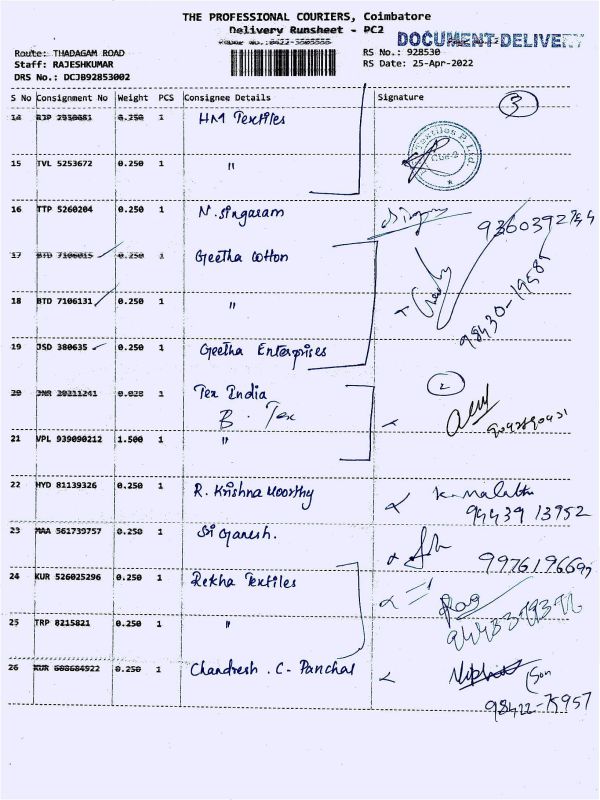 THE PROFESSIONAL COURIERS, Coimbatore
Delivery Runsheet - PC2
DOCUMENT DELIVERY
Route: THADAGAM ROAD
RS No.: 928530
Staff: RAJESHKUMAR
RS Date: 25-Apr-2022
DRS No.: DCJB92853002
S No Consignment No Weight PCS Consignee Details Signature
3
14 0.250 1 HM Textiles
15 TVL 5253672 0.250 1 "
16 TTP 5260204 0.250 1 N. Singaram
17 BTD 7106015 0.250 1 Geetha Cotton
18 BTD 7106131 0.250 1 " 98430-19585
19 JSD 380635 0.250 1 Geetha Enterprises
20 0.028 1 Tex India
B. Tex
21 VPL 939090212 1.500 1 "
22 HYD 81139326 0.250 1 R. Krishna Moorthy
94439 13952
23 MAA 561739757 0.250 1 Sri Ganesh.
24 KUR 526025296 0.250 1 Rekha Textiles
25 TRP 8215821 0.250 1 "
26 KUR 608684922 0.250 1 Chandresh . C - Panchal
(Son
98422-75957